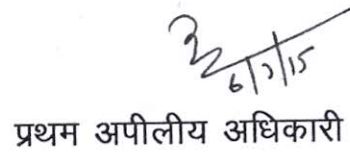 6/7/15
प्रथम अपीलीय अधिकारी